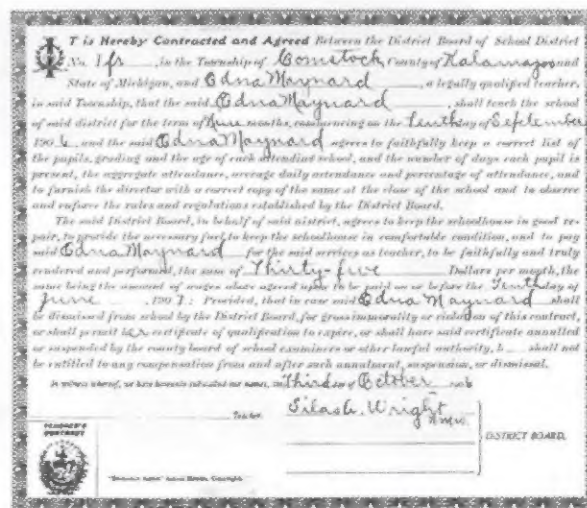 IT is Hereby Contracted and Agreed Between the District Board of School District
No. 1 fr, in the Township of Comstock, County of Kalamazoo and
State of Michigan, and Edna Maynard, a legally qualified teacher,
in said Township, that the said Edna Maynard, shall teach the school
of said district for the term of Nine months, commencing on the Tenth day of September
1906, and the said Edna Maynard agrees to faithfully keep a correct list of
the pupils, grading and the age of each attending school, and the number of days each pupil is
present, the aggregate attendance, average daily attendance and percentage of attendance, and
to furnish the director with a correct copy of the same at the close of the school and to observe
and enforce the rules and regulations established by the District Board.
The said District Board, in behalf of said district, agrees to keep the schoolhouse in good re-
pair, to provide the necessary fuel, to keep the schoolhouse in comfortable condition, and to pay
said Edna Maynard for the said services as teacher, to be faithfully and truly
rendered and performed, the sum of Thirty-five Dollars per month, the
same being the amount of wages above agreed upon to be paid on or before the Tenth day of
June, 1907: Provided, that in case said Edna Maynard shall
be dismissed from school by the District Board, for gross immorality or violation of this contract,
or shall permit her certificate of qualification to expire, or shall have said certificate annulled
or suspended by the county board of school examiners or other lawful authority, h shall not
be entitled to any compensation from and after such annulment, suspension, or dismissal.
In witness whereof, we have hereunto subscribed our names, this Third day of October 1906
Teacher. Silas Wright
DISTRICT BOARD.
TEACHER'S
CONTRACT